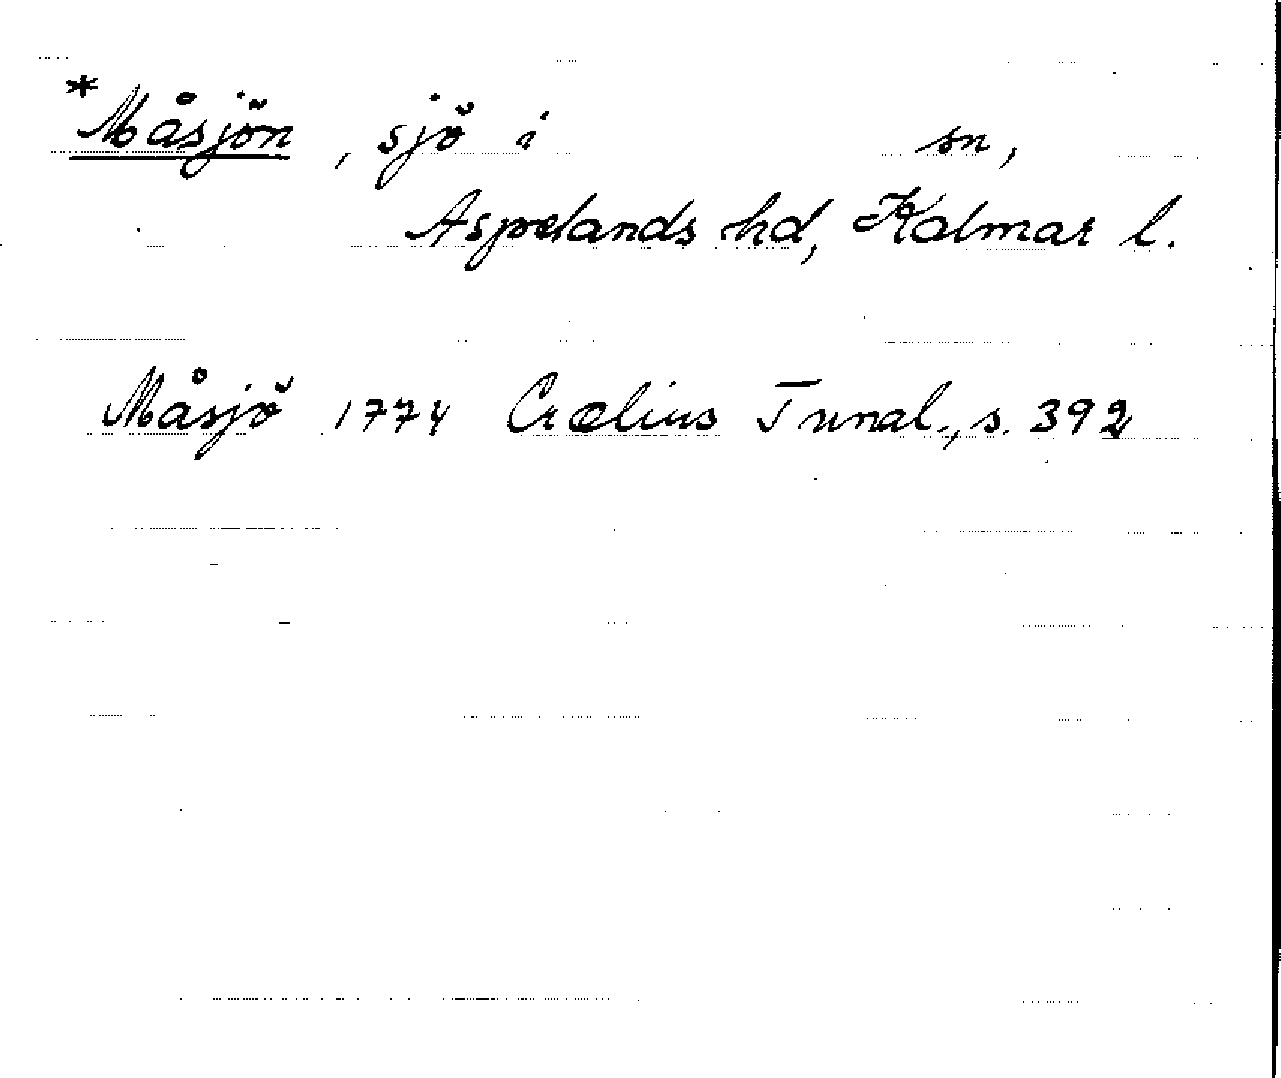 *Måsjön, sjö i sn,
Aspelands hd, Kalmar l.
Måsjö 1774 Crælius Tunal., s. 392